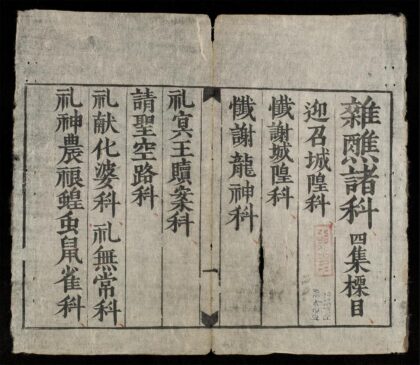 雜醮諸科 四集標目
迎召城隍科
懺謝城隍科
懺謝龍神科
一
礼冥王贖案科
請聖空路科
礼献化婆科 礼無常科
礼神農禳蝗虫鼠雀科